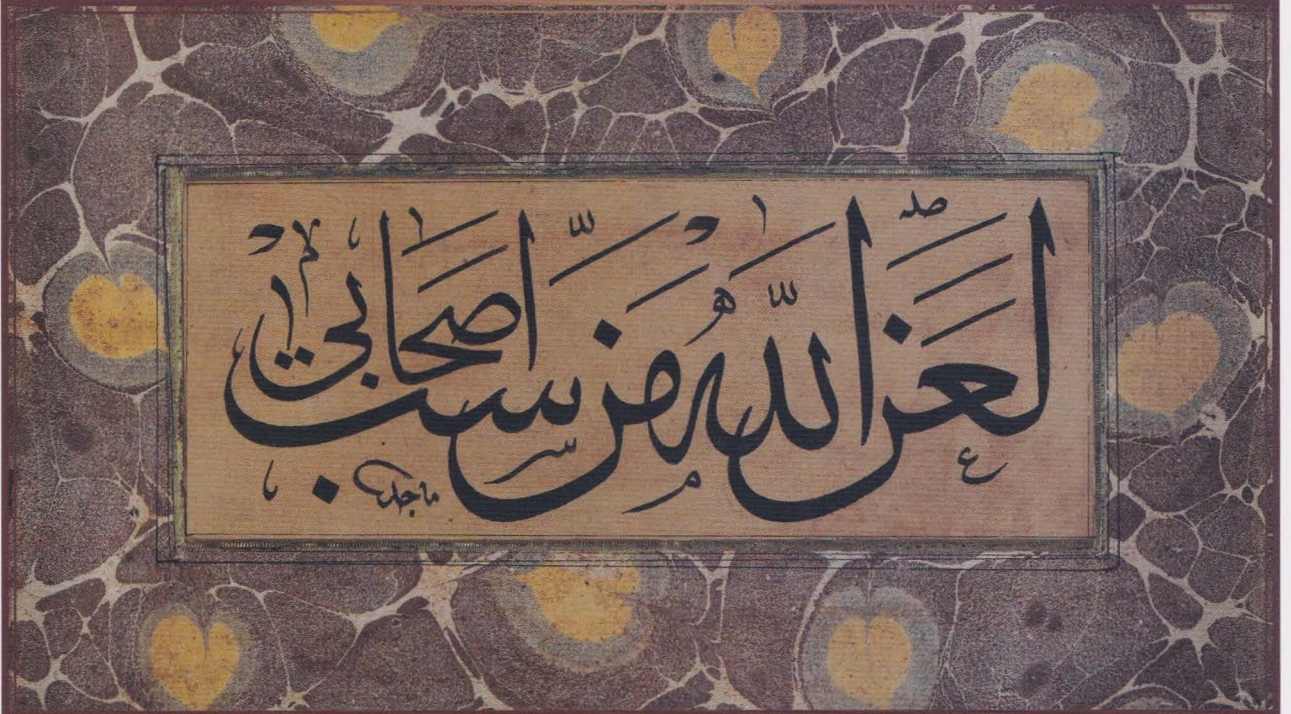 لعن الله من سب اصحابي
ماجد